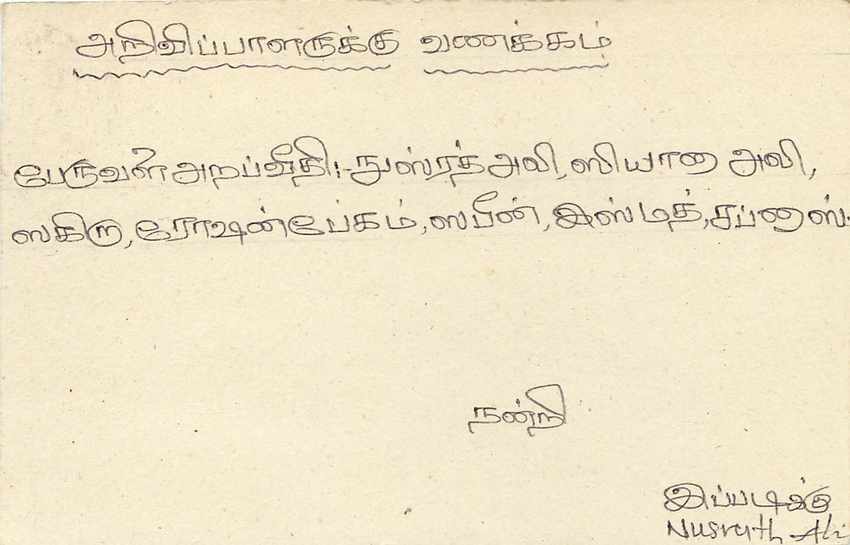 அறிவிப்பாளருக்கு வணக்கம்
பேருவளை அறப்வீதி:- நுஸ்ரத் அலி, ஸியானா அலி,
ஸகிரு, ரோஷன் பேகம், ஸபீன், இஸ்டிக், சப்னாஸ்.
நன்றி
இப்படிக்கு
Nusrath Ali